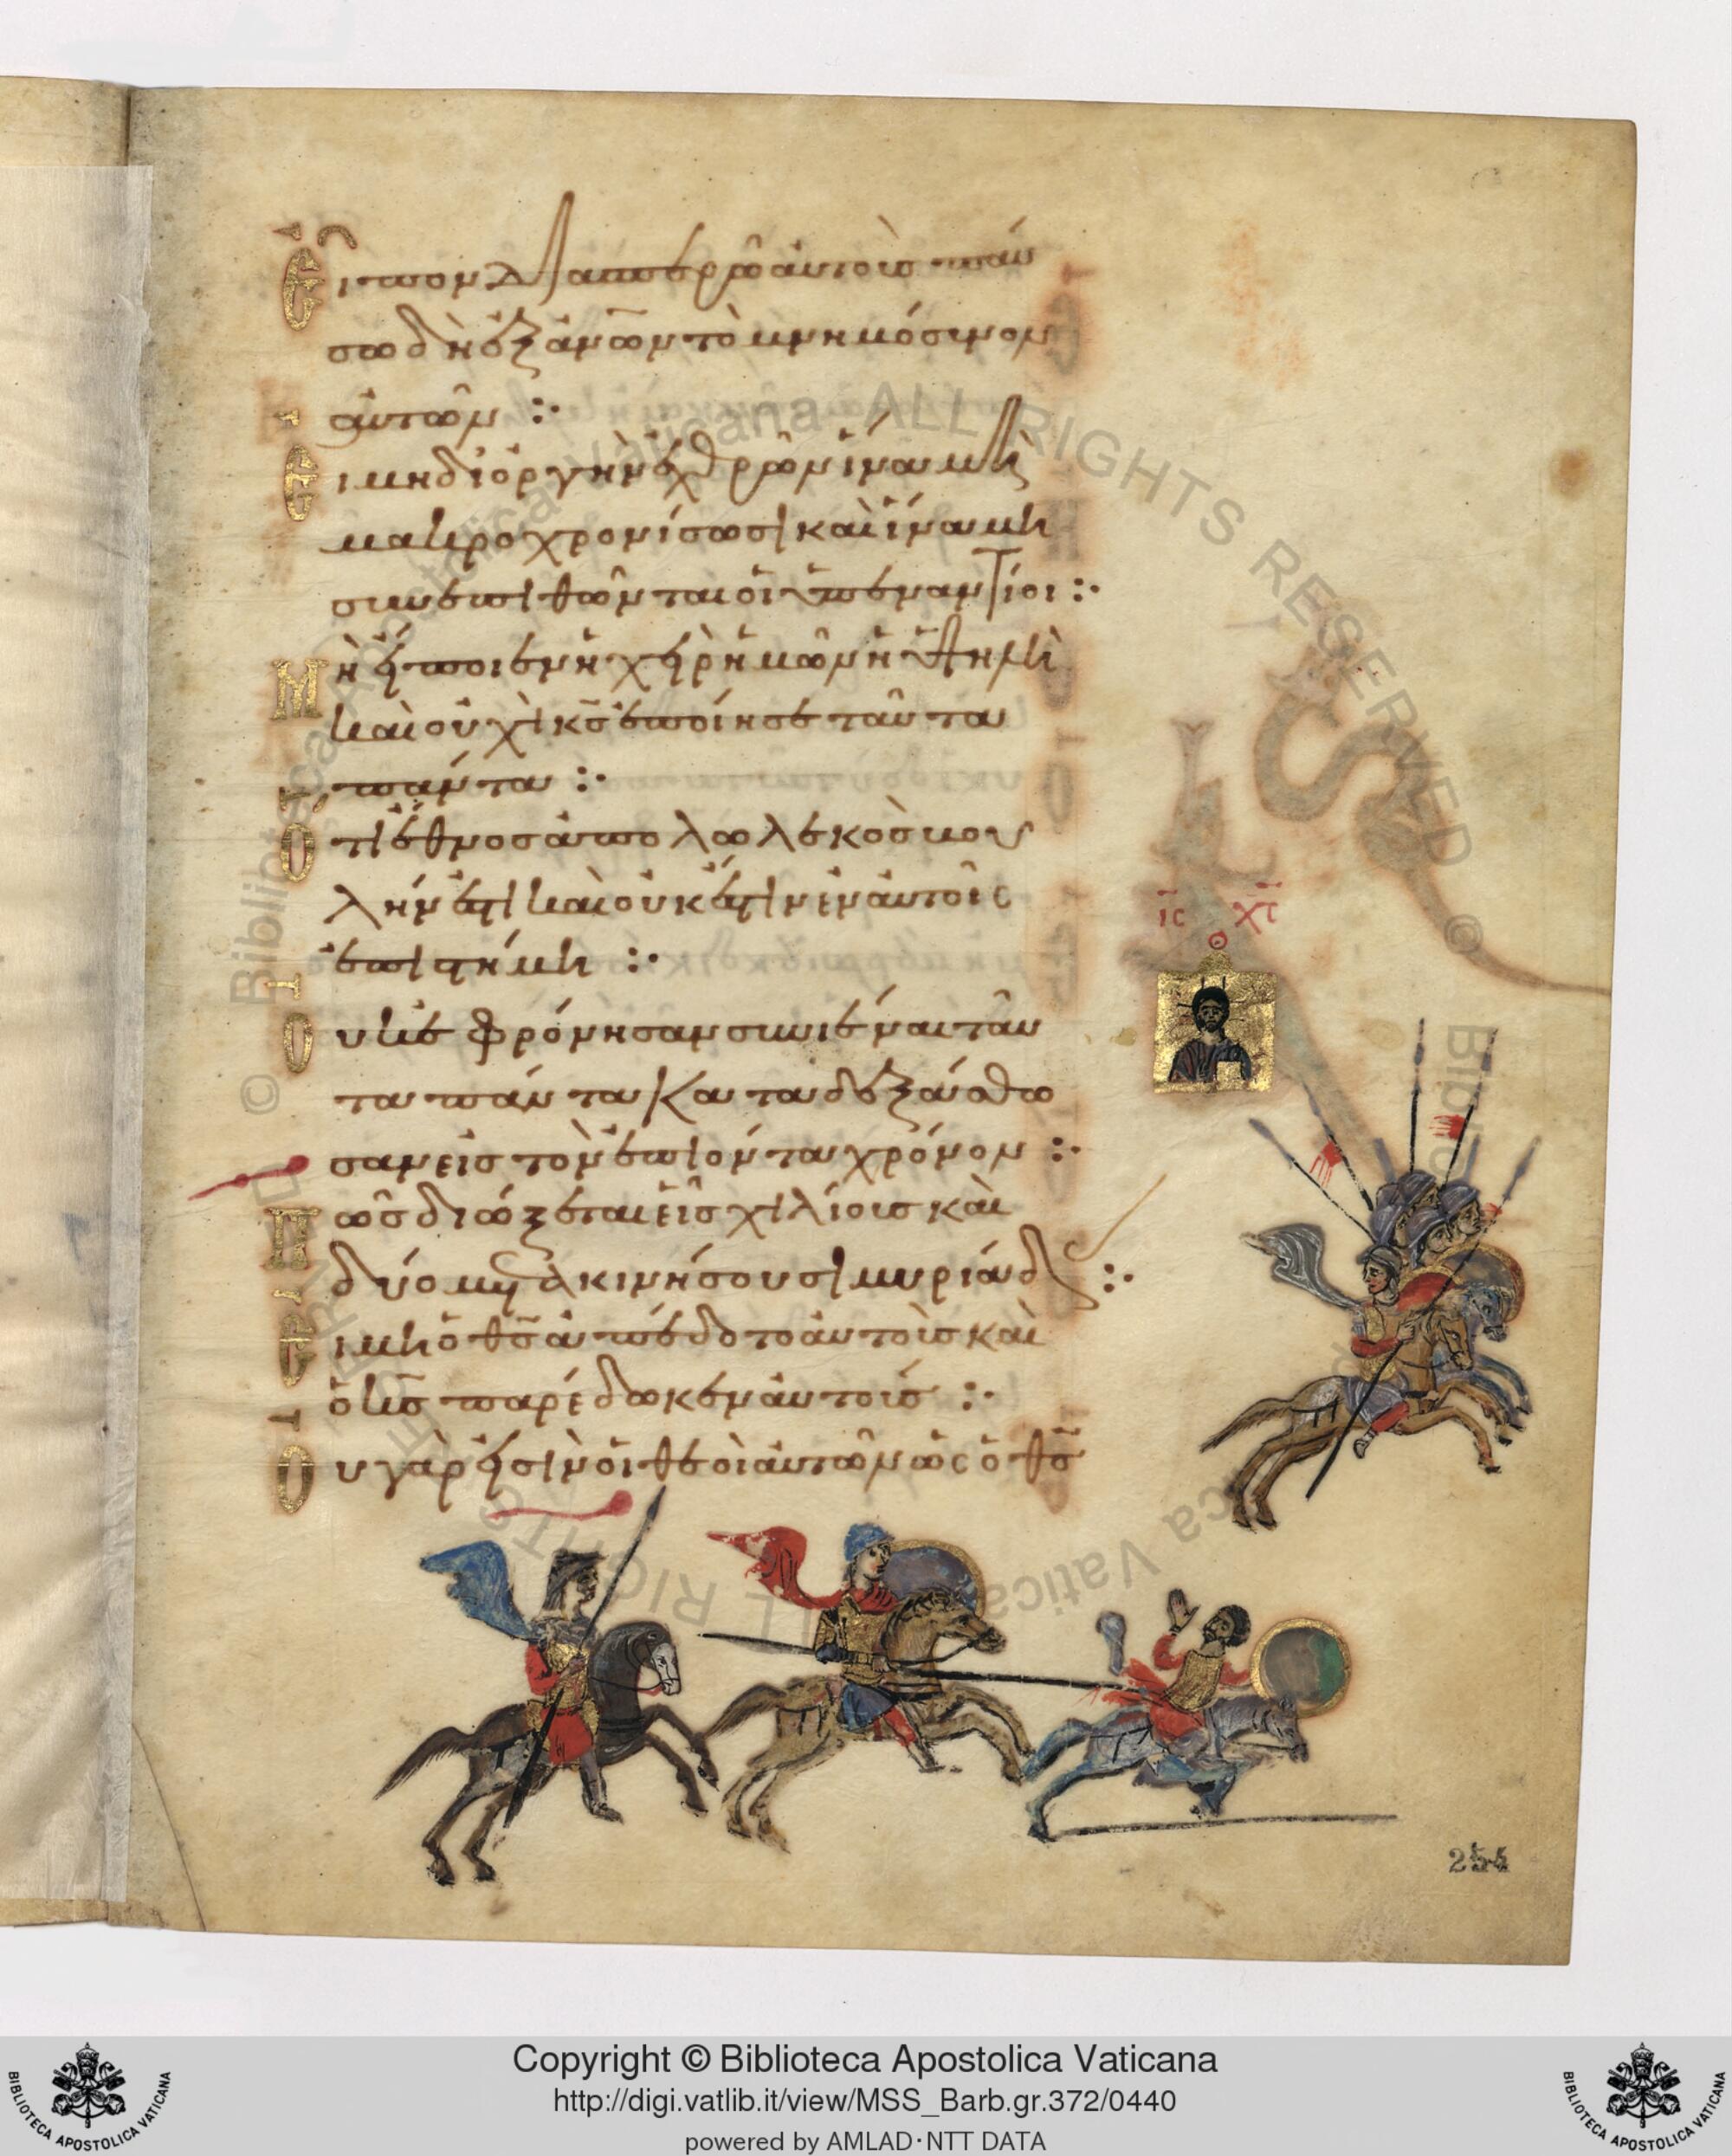 Εἶπον διασπερῶ αὐτοὺς παύ
σω δὴ ἐξ ἀνῶν τὸ μνημόσυνον
αὐτῶν :·
Εἰ μὴ δι ὀργὴν ἐχθρῶν ἵνα μὴ
μακροχρονίσωσι καὶ ἵνα μὴ
συνεπιθῶνται οἱ ὑπεναντίοι :·
Μὴ εἴπωσιν ἡ χεὶρ ἡμῶν ἡ ὑψηλὴ
καὶ οὐχὶ κς ἐποίησε ταῦτα
πάντα :·
Ὅτι ἔθνος ἀπολωλεκὸς βου
λήν ἐστι καὶ οὐκ ἔστιν ἐν αὐτοῖς
ἐπιστήμη :·
Οὐκ ἐφρόνησαν συνιέναι ταῦ
τα πάντα καταδεξάσθω
σαν εἰς τὸν ἐπιόντα χρόνον :·
Πῶς διώξεται εἷς χιλίους καὶ
δύο μετακινήσουσι μυριάδας :·
Εἰ μὴ ὁ θς ἀπέδοτο αὐτοὺς καὶ
ὁ κς παρέδωκεν αὐτούς :·
Οὐ γάρ εἰσιν οἱ θεοὶ αὐτῶν ὡς ὁ θς
ις χς
254
© Biblioteca Apostolica Vaticana ALL RIGHTS RESERVED
Copyright © Biblioteca Apostolica Vaticana
http://digi.vatlib.it/view/MSS_Barb.gr.372/0440
powered by AMLAD·NTT DATA
BIBLIOTECA APOSTOLICA VATICANA
BIBLIOTECA APOSTOLICA VATICANA